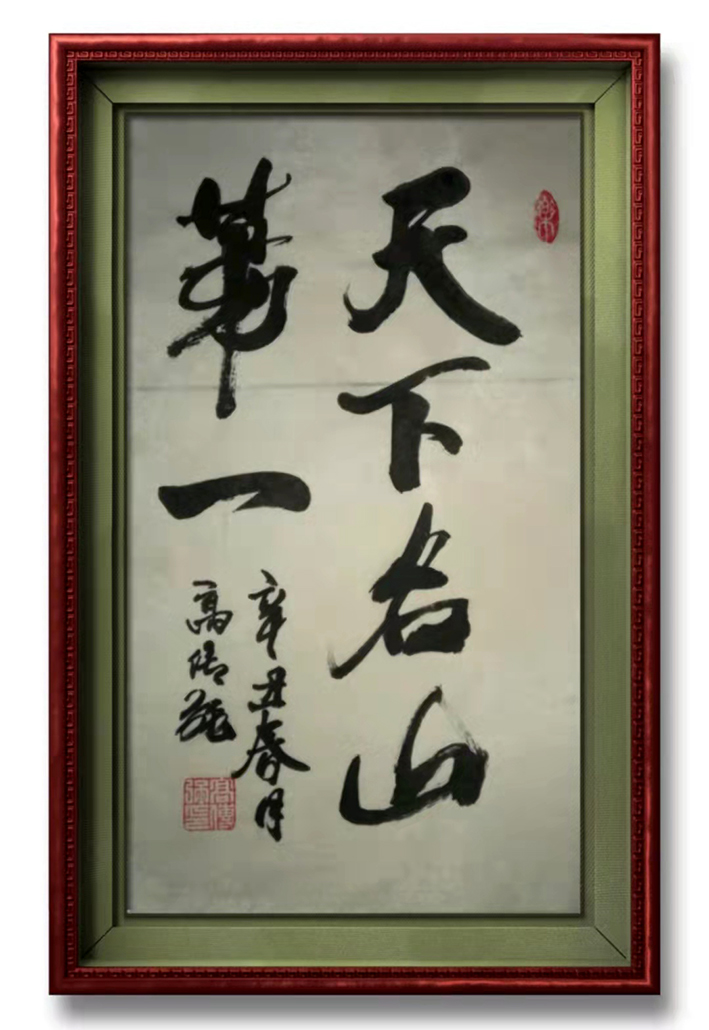 天下名山
第一
辛丑春月
高传